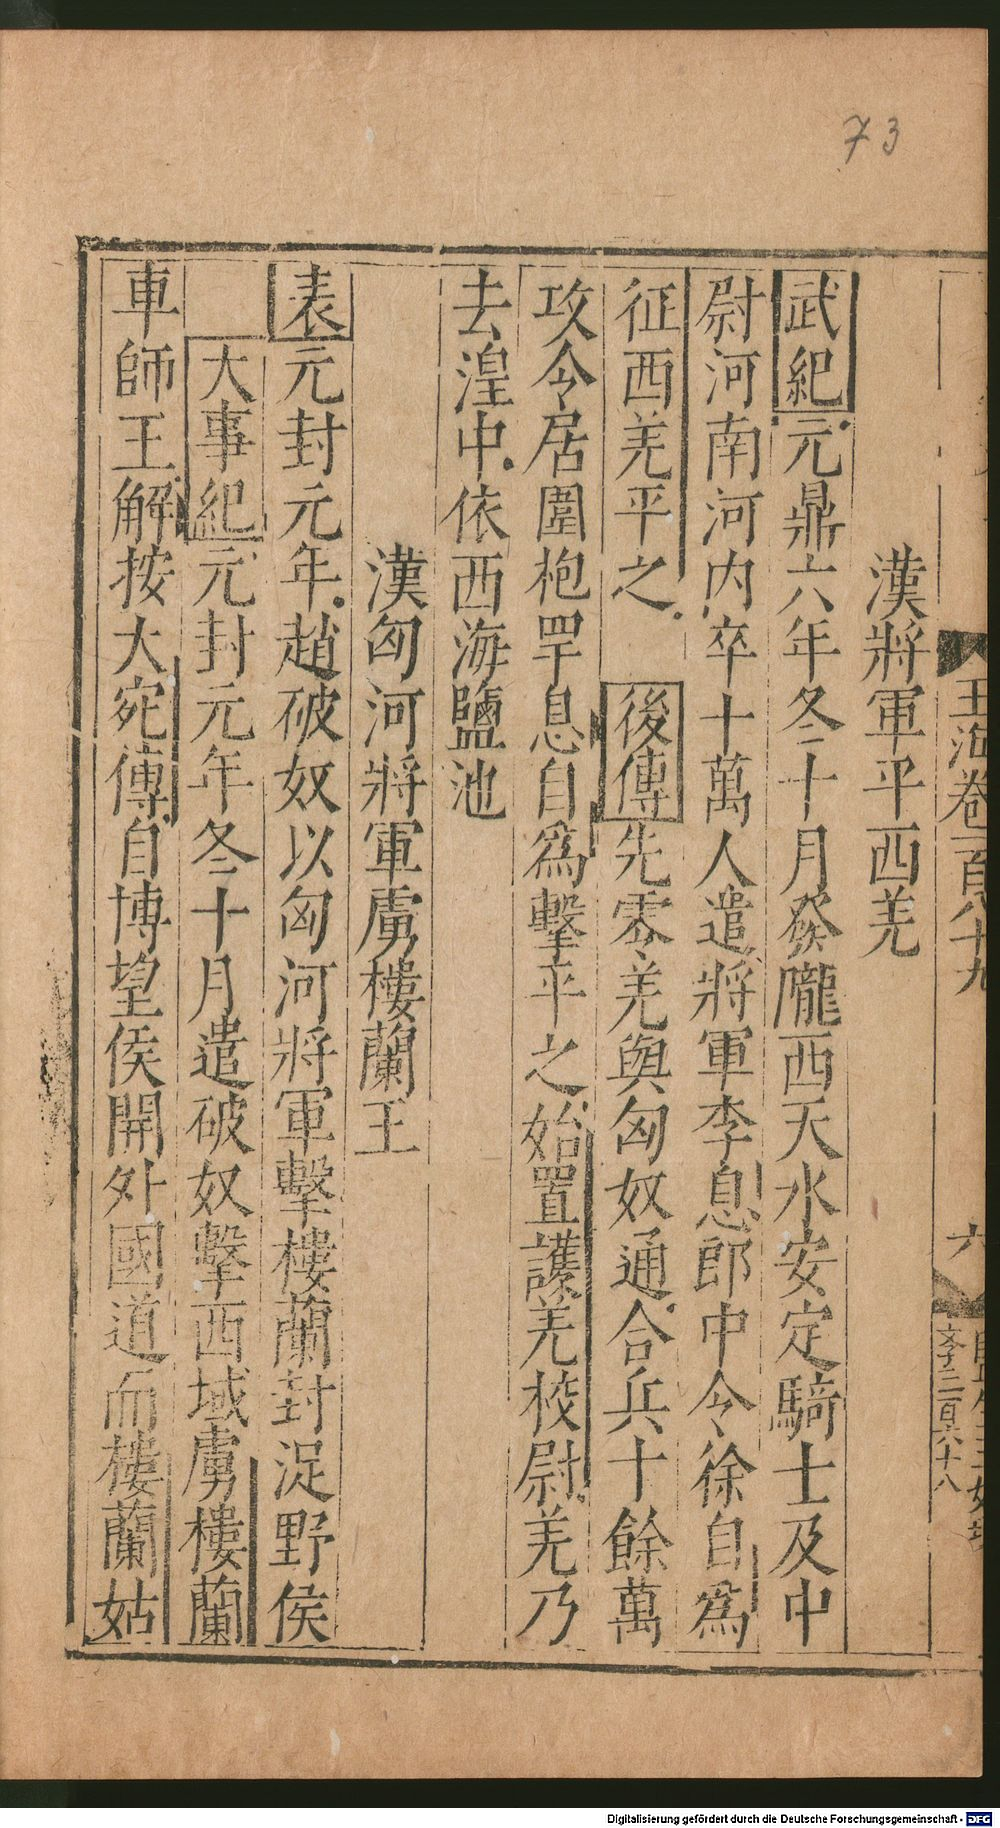 73
玉海卷一百八十九
六
文字二百六十八
漢將軍平西羌
武紀元鼎六年冬十月發隴西天水安定騎士及中
尉河南河内卒十萬人遣將軍李息郎中令徐自爲
征西羌平之 後傳先零羌與匈奴通合兵十餘萬
攻令居圍枹罕息自爲擊平之始置護羌校尉羌乃
去湟中依西海鹽池
漢匈河將軍虜樓蘭王
表元封元年趙破奴以匈河將軍擊樓蘭封浞野侯
大事紀元封元年冬十月遣破奴擊西域虜樓蘭
車師王解按大宛傳自博望侯開外國道而樓蘭姑
Digitalisierung gefördert durch die Deutsche Forschungsgemeinschaft - DFG